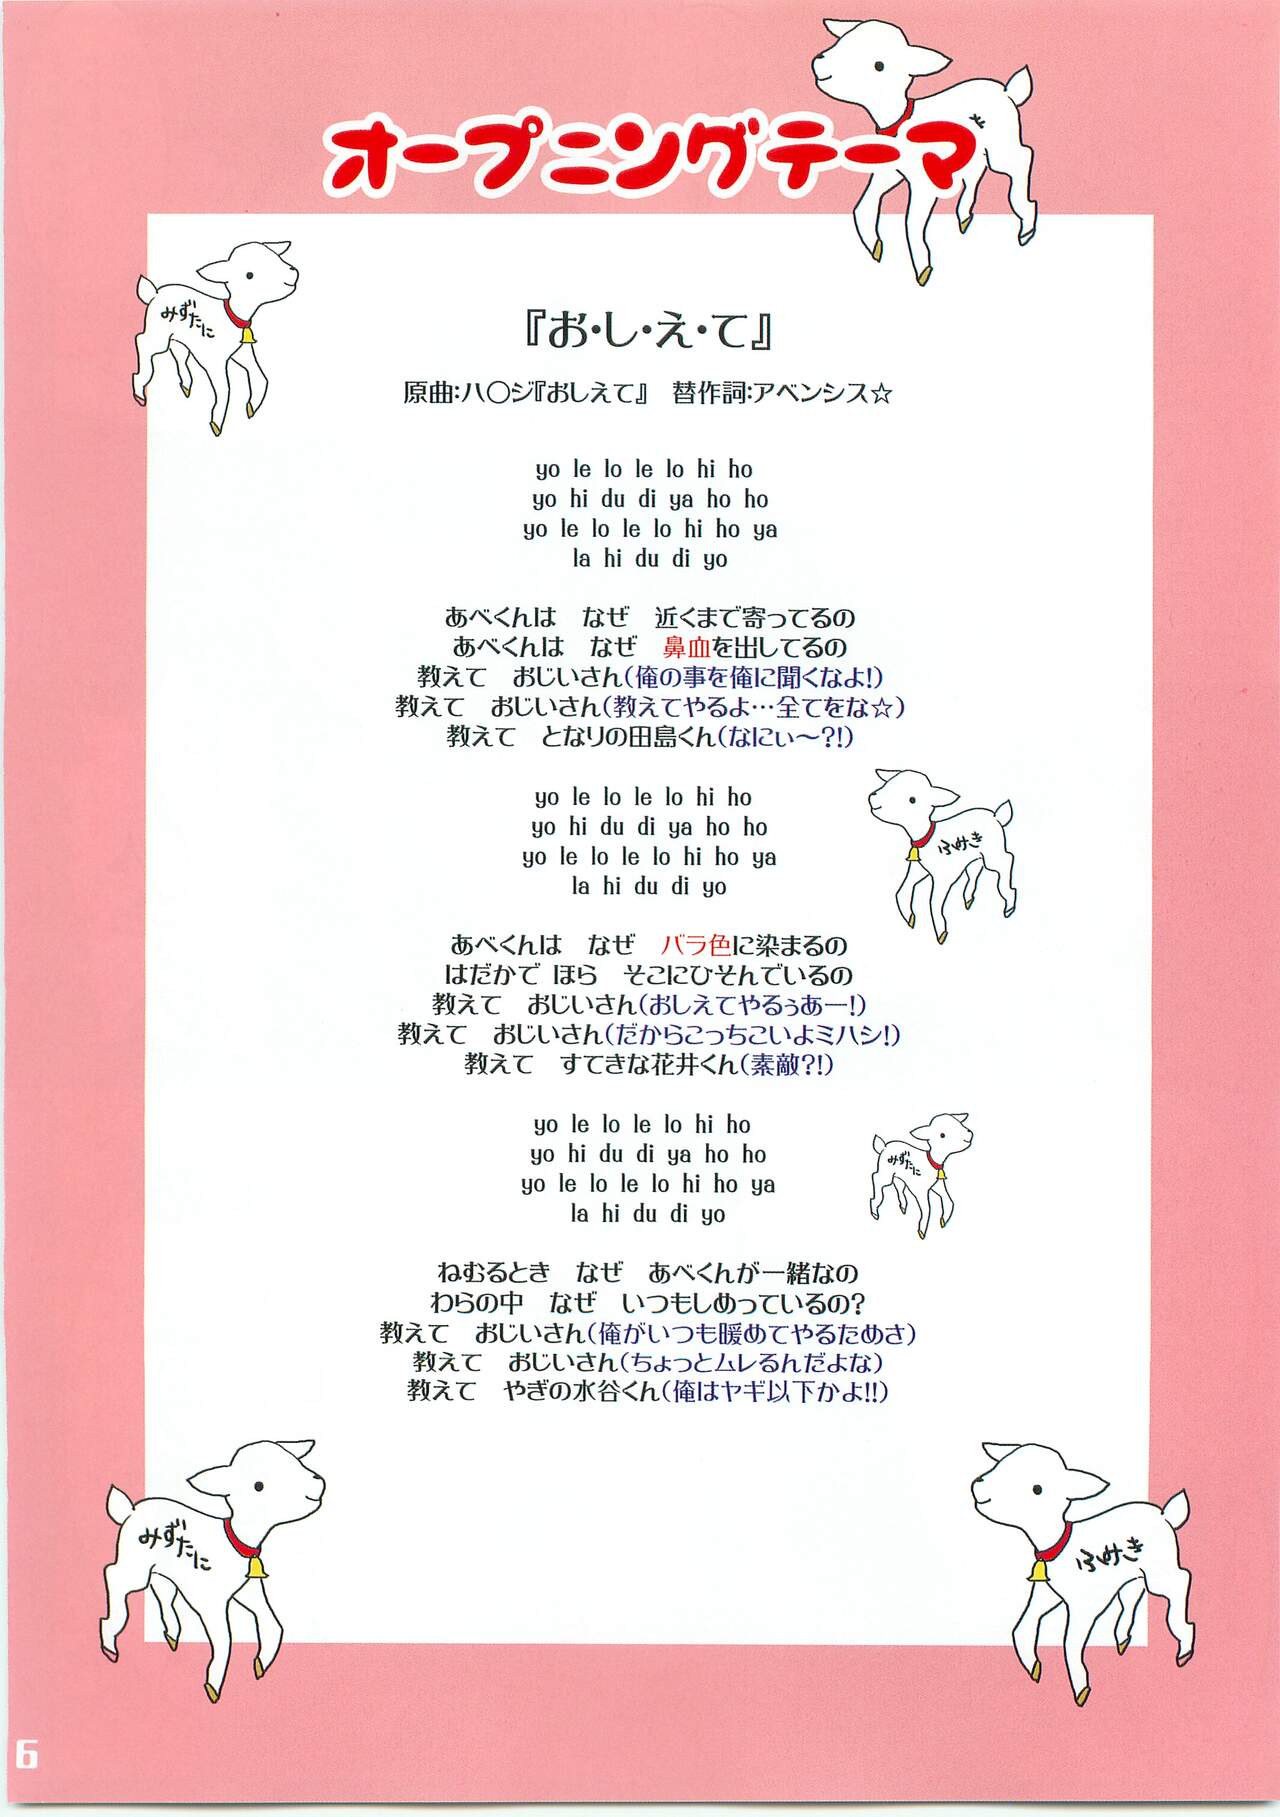 オープニングテーマ
みずたに
『お・し・え・て』
原曲:ハ〇ジ『おしえて』　替作詞:アベンシス☆
yo le lo le lo hi ho
yo hi du di ya ho ho
yo le lo le lo hi ho ya
la hi du di yo
あべくんは　なぜ　近くまで寄ってるの
あべくんは　なぜ　鼻血を出してるの
教えて　おじいさん(俺の事を俺に聞くなよ!)
教えて　おじいさん(教えてやるよ…全てをな☆)
教えて　となりの田島くん(なにぃ〜?!)
yo le lo le lo hi ho
yo hi du di ya ho ho
yo le lo le lo hi ho ya
la hi du di yo
ふみき
あべくんは　なぜ　バラ色に染まるの
はだかで ほら　そこにひそんでいるの
教えて　おじいさん(おしえてやるぅあー!)
教えて　おじいさん(だからこっちこいよミハシ!)
教えて　すてきな花井くん(素敵?!)
yo le lo le lo hi ho
yo hi du di ya ho ho
yo le lo le lo hi ho ya
la hi du di yo
みずたに
ねむるとき　なぜ　あべくんが一緒なの
わらの中　なぜ　いつもしめっているの?
教えて　おじいさん(俺がいつも暖めてやるためさ)
教えて　おじいさん(ちょっとムレるんだよな)
教えて　やぎの水谷くん(俺はヤギ以下かよ!!)
みずたに
ふみき
6